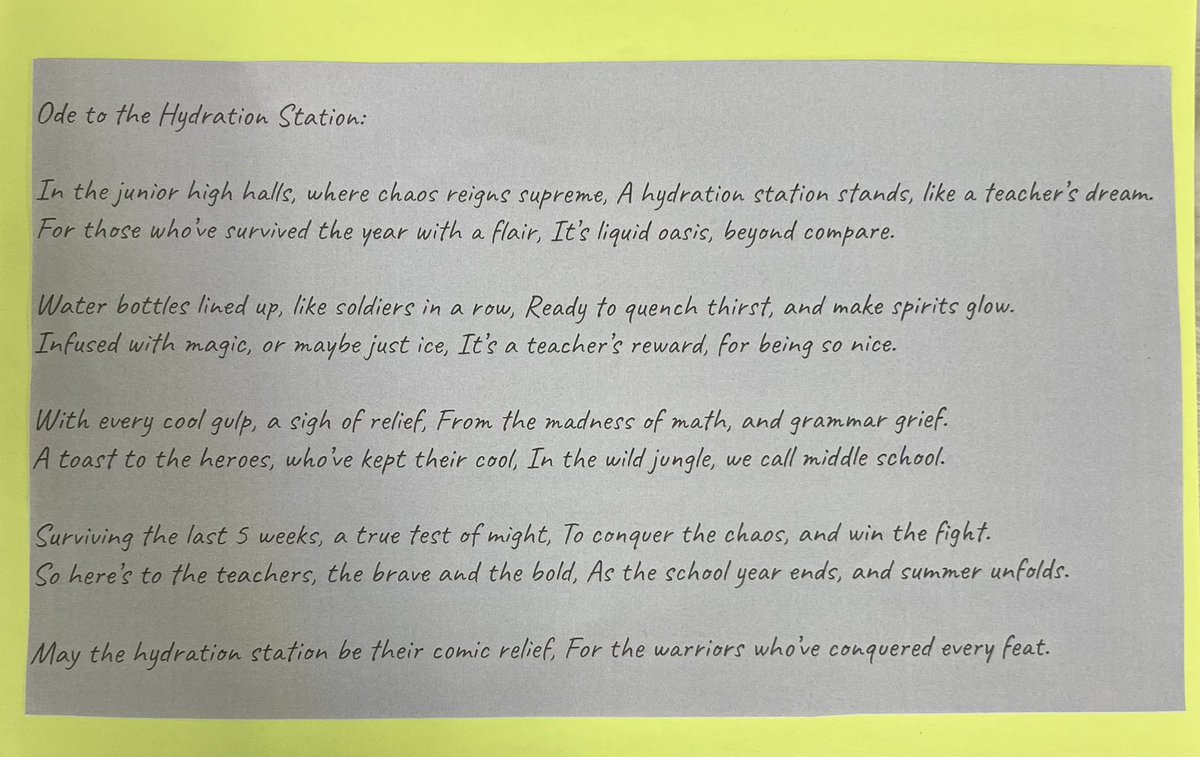 Ode to the Hydration Station:
In the junior high halls, where chaos reigns supreme, A hydration station stands, like a teacher's dream.
For those who've survived the year with a flair, It's liquid oasis, beyond compare.
Water bottles lined up, like soldiers in a row, Ready to quench thirst, and make spirits glow.
Infused with magic, or maybe just ice, It's a teacher's reward, for being so nice.
With every cool gulp, a sigh of relief, From the madness of math, and grammar grief.
A toast to the heroes, who've kept their cool, In the wild jungle, we call middle school.
Surviving the last 5 weeks, a true test of might, To conquer the chaos, and win the fight.
So here's to the teachers, the brave and the bold, As the school year ends, and summer unfolds.
May the hydration station be their comic relief, For the warriors who've conquered every feat.